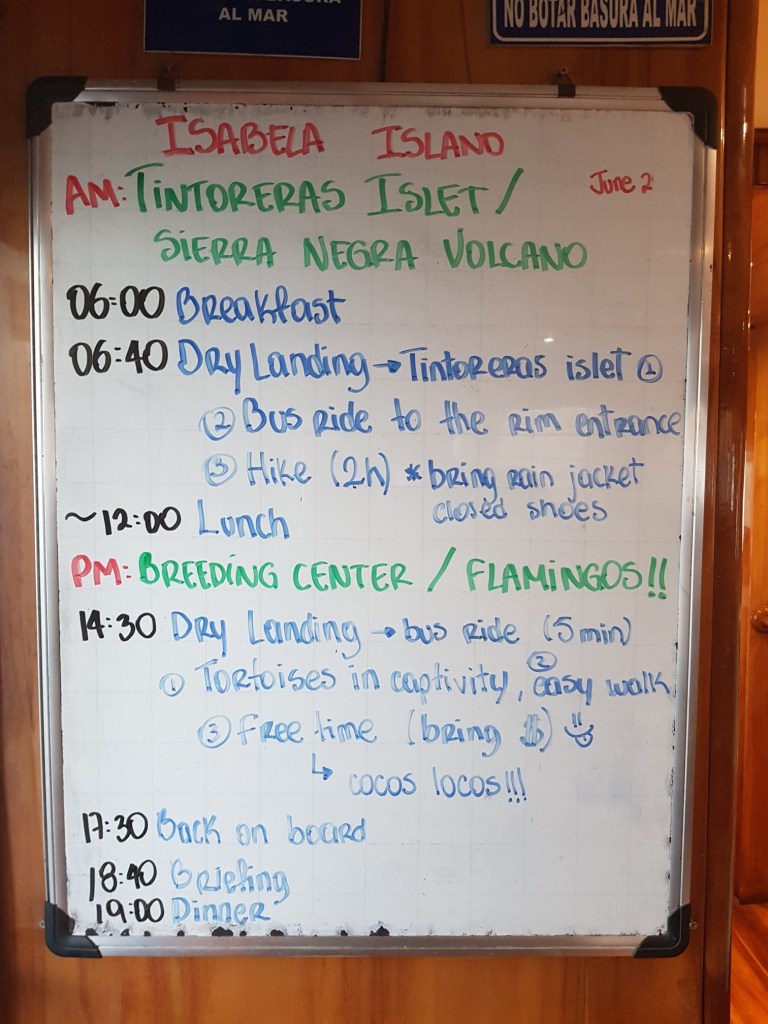 AL MAR
NO BOTAR BASURA AL MAR
ISABELA ISLAND
AM: TINTORERAS ISLET /
June 2
SIERRA NEGRA VOLCANO
06:00 Breakfast
06:40 Dry Landing → Tintoreras islet ①
② Bus ride to the rim entrance
③ Hike (2h) * bring rain jacket
closed shoes
~12:00 Lunch
PM: BREEDING CENTER / FLAMINGOS!!
14:30 Dry Landing → bus ride (5 min)
① Tortoises in captivity, ② easy walk
③ Free time (bring $) 😃
↳ cocos locos!!!
17:30 Back on board
18:40 Briefing
19:00 Dinner